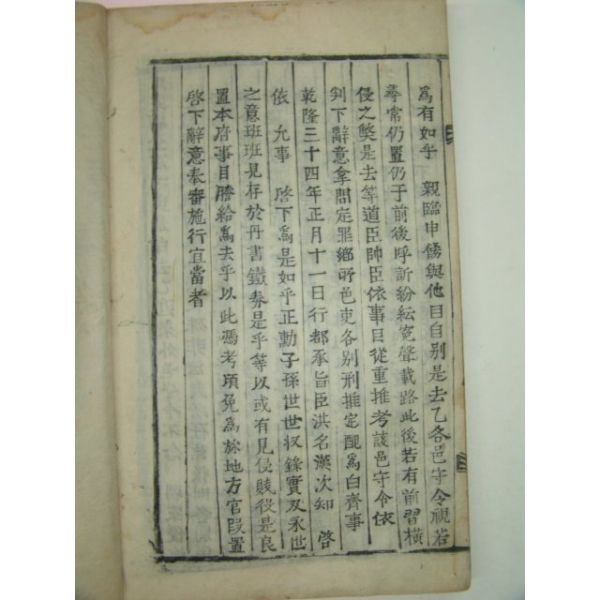 爲有如乎 親臨申飭與他目自別是去乙各邑守令視若
尋常仍置仍于前後呼訴紛紜寃聲載路此後若有前習橫
侵之獘是去等道臣帥臣依事目從重推考該邑守令依
判下辭意拿問定罪鄕所邑吏各別刑推定配爲白齊事
乾隆三十四年正月十一日行都承旨臣洪名漢次知 啓
依 允事 啓下爲是如乎正勳子孫世世収錄實及永世
之意班班見存於丹書鐵券是乎等以或有見侵賤役是良
置本府事目謄給爲去乎以此憑考頉免爲旀地方官段置
啓下辭意奉審施行宜當者